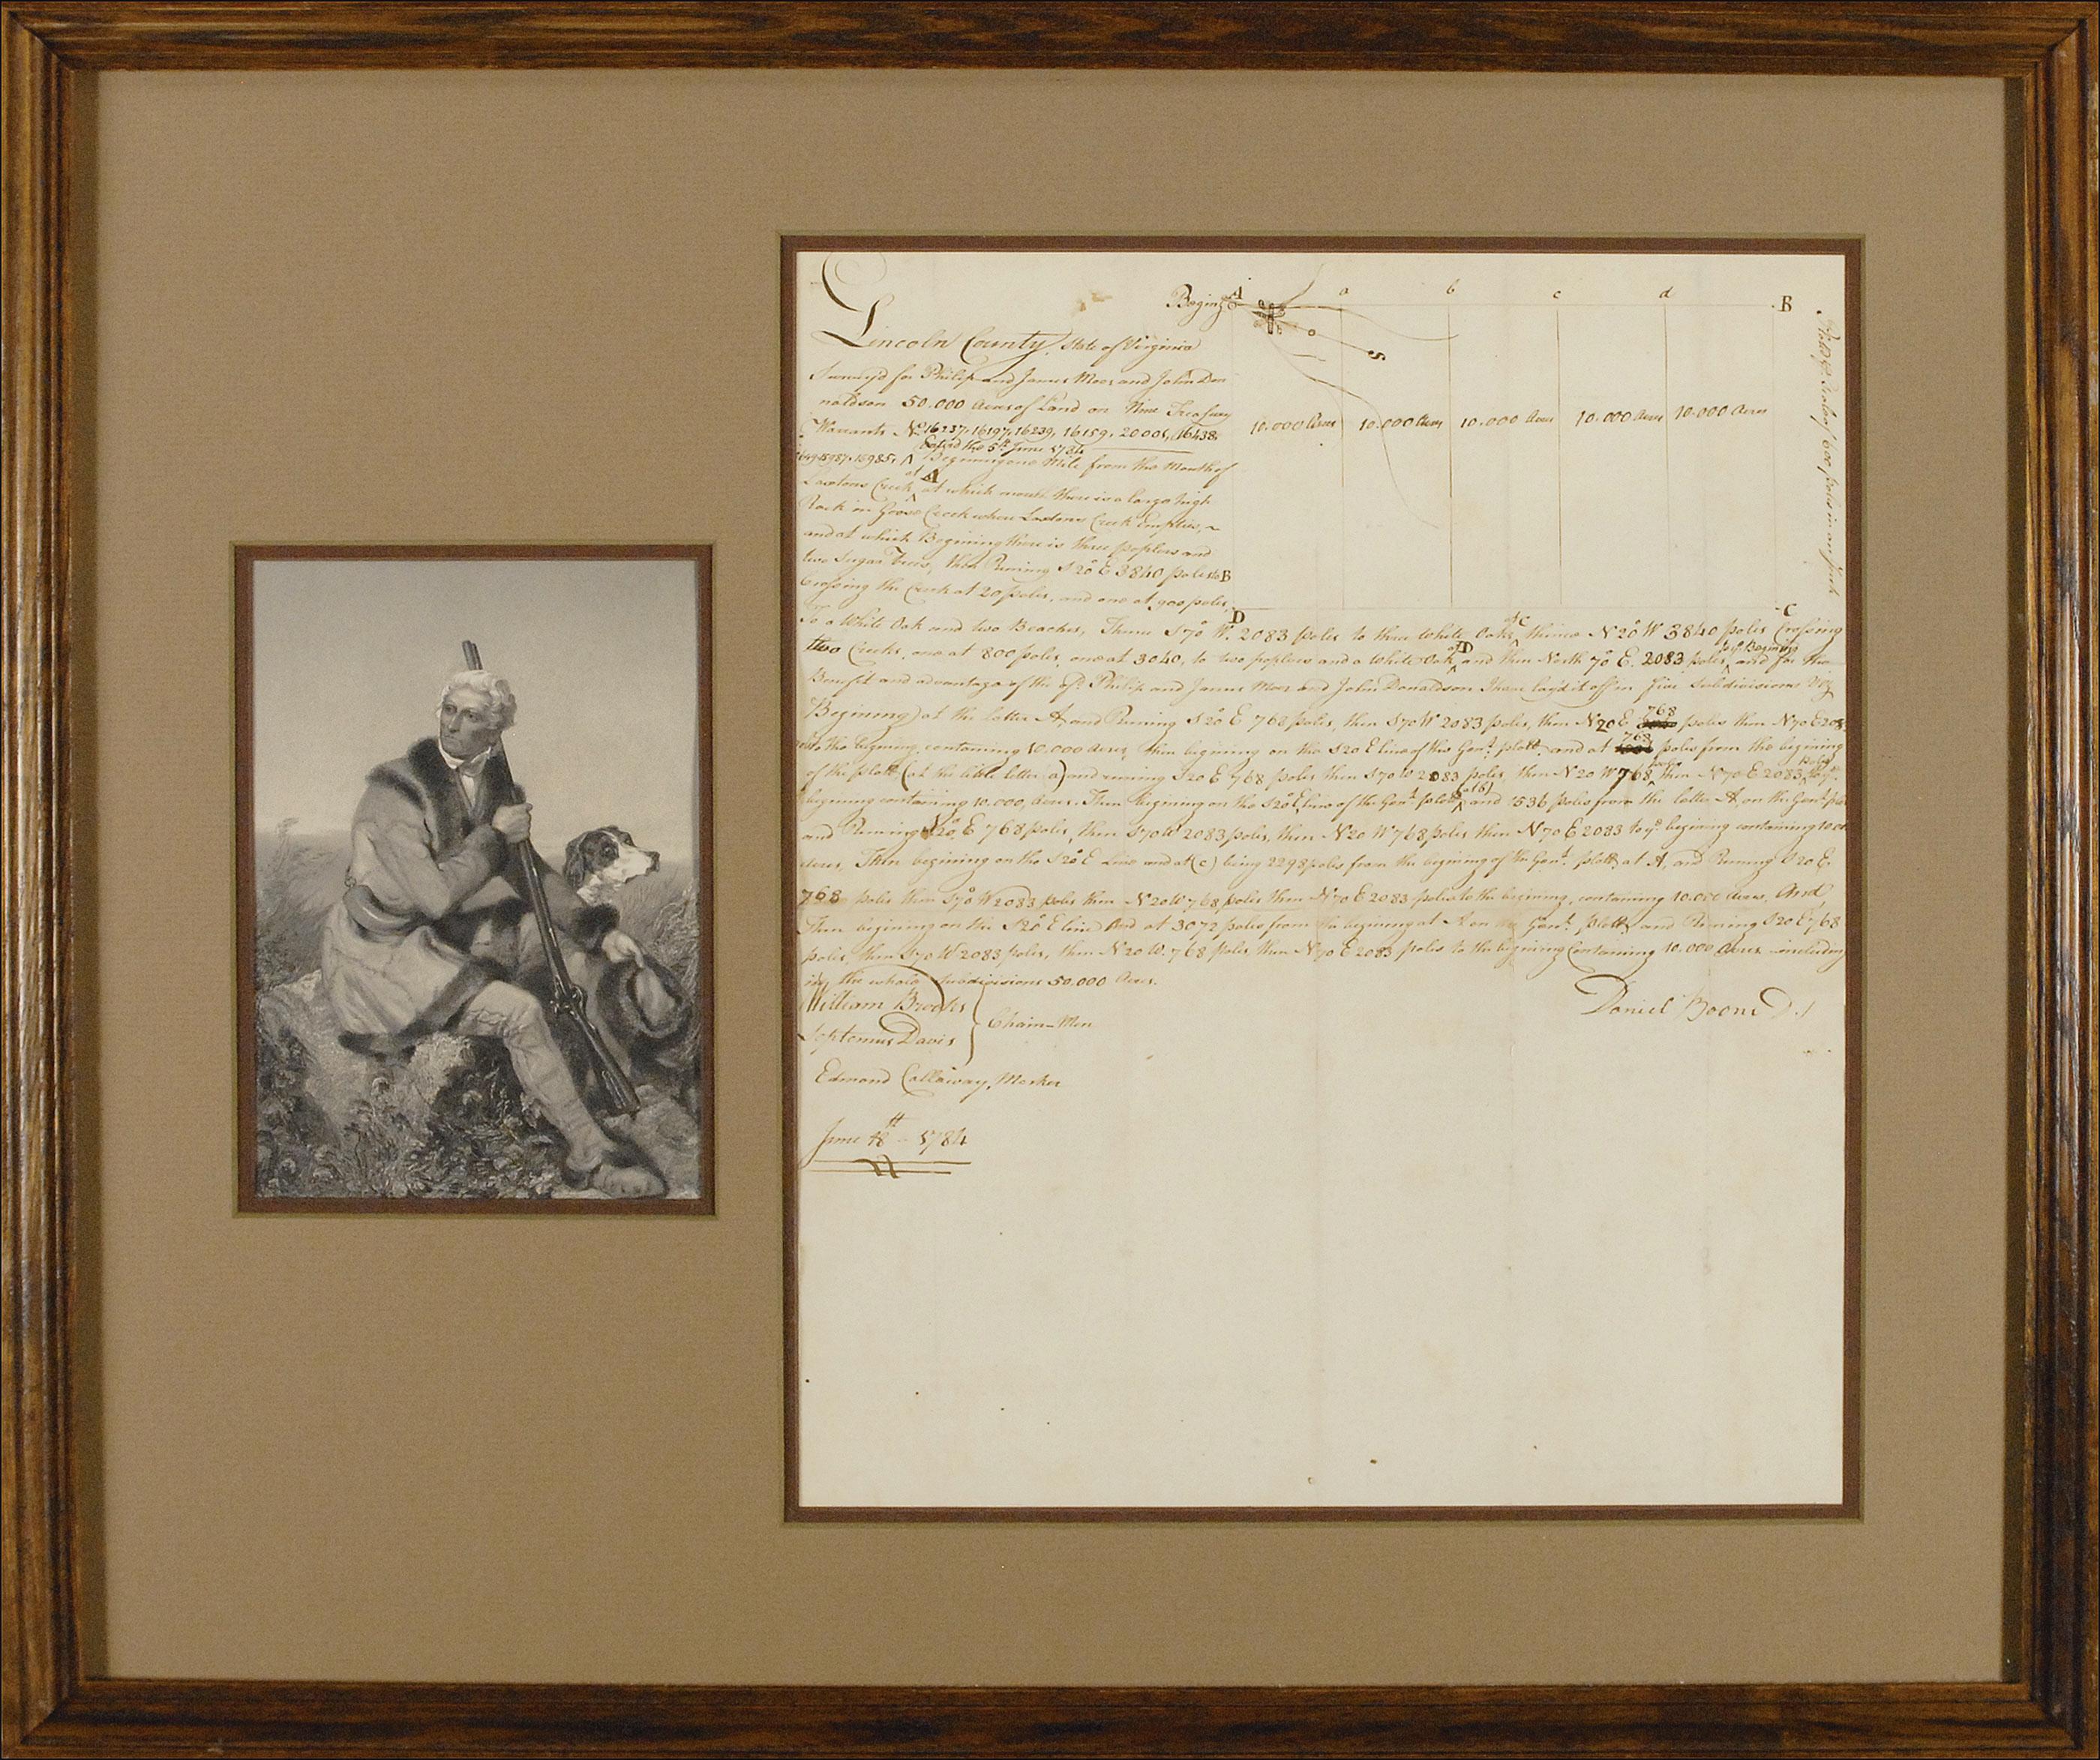 Begin.g A a b c d B
Lincoln County, State of Virginia
Survey'd for Philip and James Moor and John Don
naldson 50.000 Acres of Land on Nine Treasury
Warrants No. 16237, 16197, 16239, 16159, 20001, 16438,
Enter'd the 5th June 1784
15987, 15985, Begining one Mile from the Mouth of
Laxtons Creek at A at which mouth there is a large high
Rock in Goose Creek where Laxtons Creek Empties,
and at which Begining there is three poplars and
two Sugar Trees, then Runing S 20° E 3840 poles to B
Crossing the Creek at 20 poles, and one at 900 poles,
10.000 Acres 10.000 Acres 10.000 Acres 10.000 Acres 10.000 Acres
S
D C
To a White Oak and two Beaches, Thence S 70° W. 2083 poles to three White Oaks at C thence N 20° W 3840 poles Crossing
two Creeks, one at 800 poles, one at 3040, to two poplars and a White Oak at D and then North 70° E. 2083 poles to ye Begining and for the
Benefit and advantage of the sd. Philip and James Moor and John Donaldson I have lay'd it off in five Subdivisions Viz
Begining) at the latter A, and Runing S 20° E 768 poles, then S 70 W 2083 poles, then N 20 E 768 poles then N 70 E 208
to the begining, containing 10.000 Acres, then begining on the S 20 E line of this Genl. plott, and at 768 poles from the begining
of the plott (at the little letter a) and runing S 20 E 768 poles then S 70 W 2083 poles, then N 20 W 768 poles then N 70 E 2083 poles to ye
begining containing 10.000 Acres. Then begining on the S 20° E line of the Genl. plott (at b) and 1536 poles from the latter A, on the Genl.
and Runing S 20° E 768 poles, then S 70 W 2083 poles, then N 20 W 768 poles then N 70 E 2083 to ye begining containing
Acres, Then begining on the S 20° E Line and at (c) being 2298 poles from the begining of the Genl. plott at A, and Runing S 20 E.
768 poles then S 70° W 2083 poles then N 20 W 768 poles then N 70 E 2083 poles to the begining, containing 10.000 Acres, And
Then begining on the S 20° E line And at 3072 poles from the begining at A on Genl. plott and Runing S 20 E 768
poles, then S 70 W 2083 poles, then N 20 W. 768 poles, then N 70 E 2083 poles to the begining Containing 10.000 Acres including
in the whole Subdivisions 50.000 Acres.
William Brooks
Septemus Davis
Chain-Men
Daniel Boone D.S
Edmond Callaway, Marker
June 18th - 1784